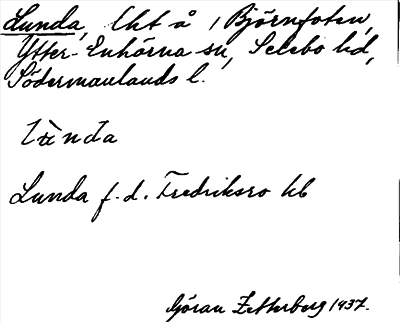 Lunda, lht å 1 Björnfoten,
Ytter-Enhörna sn, Selebo hd,
Södermanlands l.
lùnda
Lunda f.d. Fredriksro lhb
Göran Zetterberg 1937.